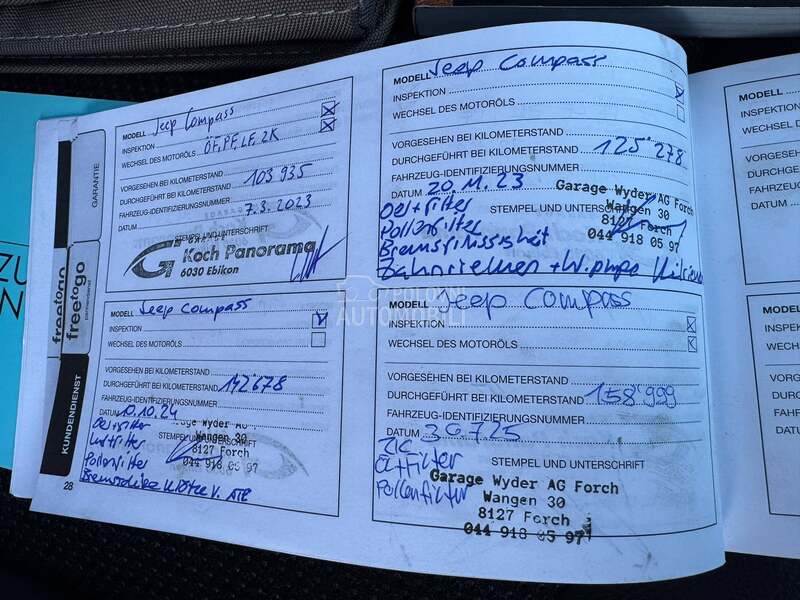 MODELL Jeep Compass
INSPEKTION
WECHSEL DES MOTORÖLS ÖF, PF, LF, ZK
VORGESEHEN BEI KILOMETERSTAND
DURCHGEFÜHRT BEI KILOMETERSTAND 103'935
FAHRZEUG-IDENTIFIZIERUNGSNUMMER
DATUM 7.3.2023
STEMPEL UND UNTERSCHRIFT
GARAGE
Koch Panorama
6030 Ebikon
MODELL Jeep Compass
INSPEKTION
WECHSEL DES MOTORÖLS
VORGESEHEN BEI KILOMETERSTAND
DURCHGEFÜHRT BEI KILOMETERSTAND 125'278
FAHRZEUG-IDENTIFIZIERUNGSNUMMER
DATUM 20.11.23
Garage Wyder AG Forch
Wangen 30
8127 Forch
044 918 05 97
STEMPEL UND UNTERSCHRIFT
Oel+Filter
Pollenfilter
Bremsflüssigkeit
Zahnriemen + W.pumpe
MODELL Jeep Compass
INSPEKTION
WECHSEL DES MOTORÖLS
VORGESEHEN BEI KILOMETERSTAND
DURCHGEFÜHRT BEI KILOMETERSTAND 142'678
FAHRZEUG-IDENTIFIZIERUNGSNUMMER
DATUM 10.10.24
Garage Wyder AG Forch
Wangen 30
8127 Forch
044 918 05 97
STEMPEL UND UNTERSCHRIFT
Oel+Filter
Luftfilter
Pollenfilter
MODELL Jeep Compass
INSPEKTION
WECHSEL DES MOTORÖLS
VORGESEHEN BEI KILOMETERSTAND
DURCHGEFÜHRT BEI KILOMETERSTAND 158'999
FAHRZEUG-IDENTIFIZIERUNGSNUMMER
DATUM 30.7.25
STEMPEL UND UNTERSCHRIFT
ZK
Öl+Filter
Pollenfilter
Garage Wyder AG Forch
Wangen 30
8127 Forch
044 918 05 97
GARANTIE
freetogo
freetogo
KUNDENDIENST
28
MODELL
INSPEKTION
WECHSEL DES
VORGESEHEN
DURCHGEFÜH
FAHRZEUG-ID
DATUM
MODELL
INSPEKTIO
WECHSEL
VORGESE
DURCHG
FAHRZE
DATUM
POLOVNI
AUTOMOBILI
ZU
N